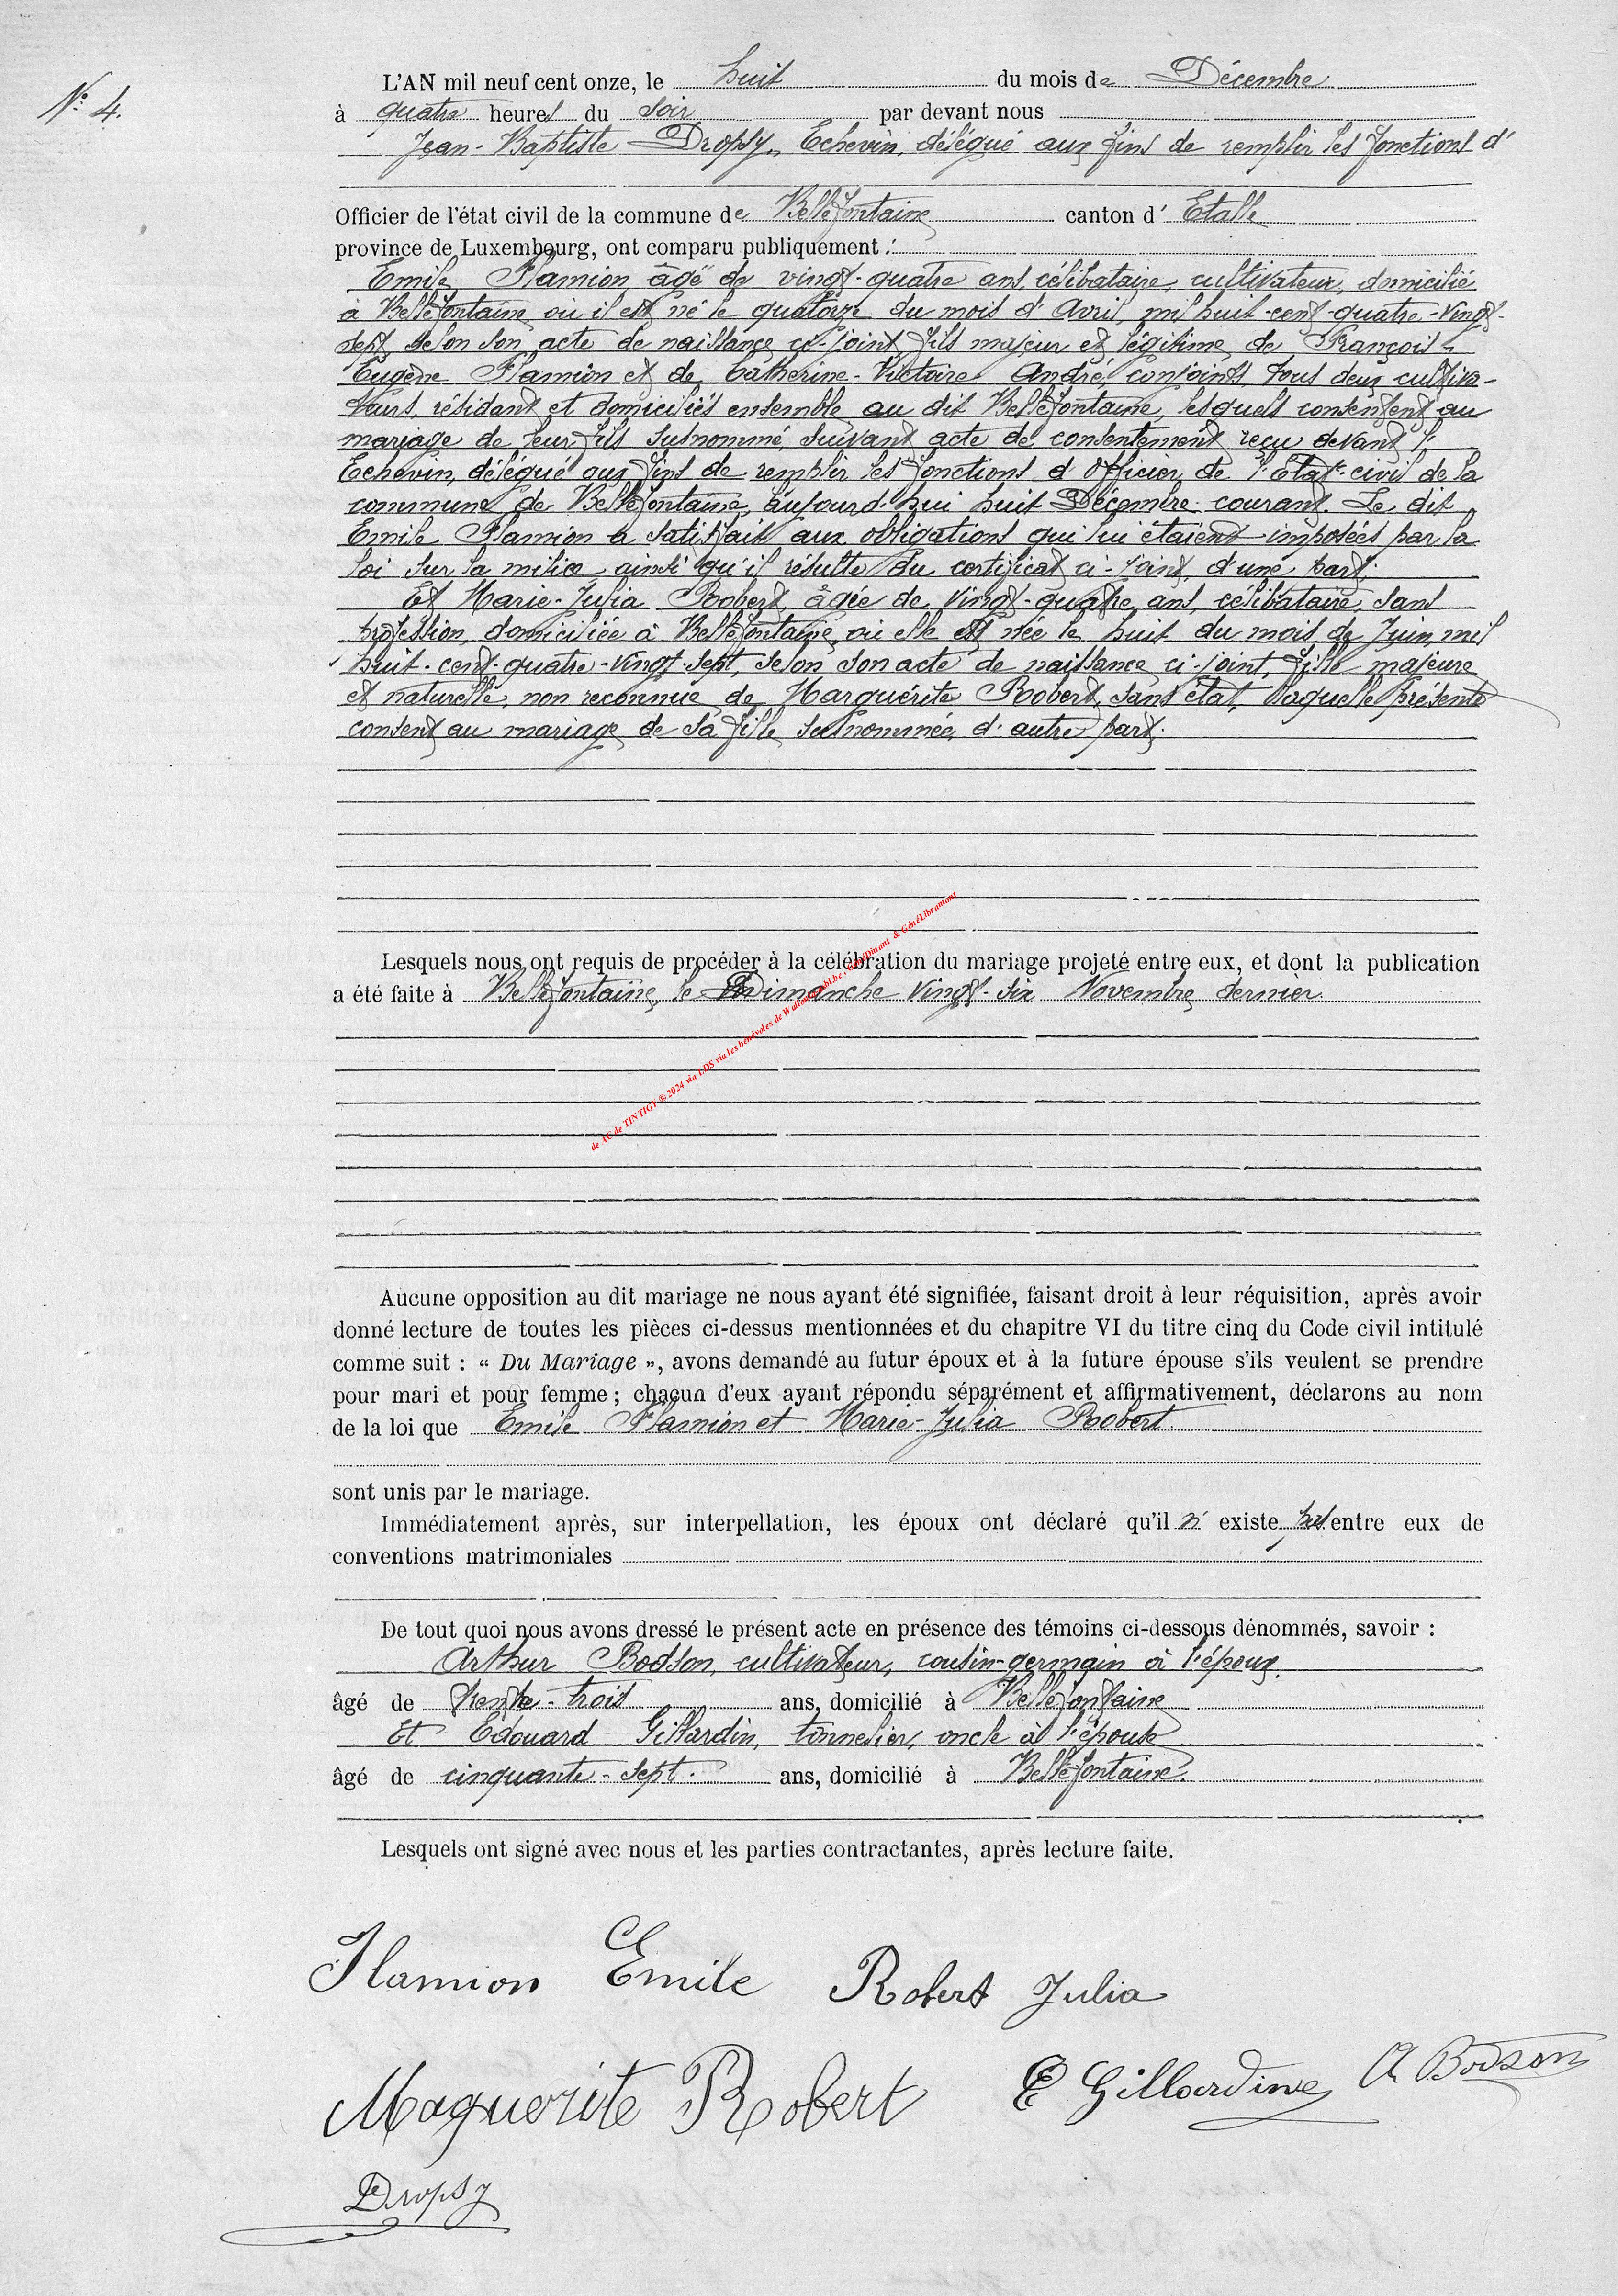 N° 4.
L'AN mil neuf cent onze, le huit du mois de Décembre
à quatre heures du soir par devant nous
Jean-Baptiste Dropsy, Echevin, délégué aux fins de remplir les fonctions d'
Officier de l'état civil de la commune de Bellefontaine canton d' Etalle
province de Luxembourg, ont comparu publiquement :
Emile Flamion, âgé de vingt-quatre ans, célibataire, cultivateur, domicilié
à Bellefontaine où il est né le quatorze du mois d'Avril, mil huit-cent-quatre-vingt-
sept, selon son acte de naissance ci-joint, fils majeur et légitime de François-
Eugène Flamion et de Catherine-Victoire André, conjoints, tous deux cultiva-
teurs, résidant et domiciliés ensemble au dit Bellefontaine, lesquels consentent au
mariage de leur fils susnommé, suivant acte de consentement reçu devant l'
Echevin, délégué aux fins de remplir les fonctions d'Officier de l'Etat-civil de la
commune de Bellefontaine, aujourd'hui huit Décembre courant. Le dit
Emile Flamion a satisfait aux obligations qui lui étaient imposées par la
loi sur la milice, ainsi qu'il résulte du certificat ci-joint, d'une part;
Et Marie-Julia Robert, âgée de vingt-quatre ans, célibataire, sans
profession, domiciliée à Bellefontaine, où elle est née le huit du mois de Juin, mil
huit-cent-quatre-vingt-sept, selon son acte de naissance ci-joint, fille majeure
et naturelle, non reconnue de Marguérite Robert, sans état, laquelle présente
consent au mariage de sa fille susnommée, d'autre part;
Lesquels nous ont requis de procéder à la célébration du mariage projeté entre eux, et dont la publication
a été faite à Bellefontaine, le Dimanche vingt-six Novembre dernier.
de AC de TINTIGY ® 2024 via LDS via les bénévoles de & GénéLibramont
Aucune opposition au dit mariage ne nous ayant été signifiée, faisant droit à leur réquisition, après avoir
donné lecture de toutes les pièces ci-dessus mentionnées et du chapitre VI du titre cinq du Code civil intitulé
comme suit : « Du Mariage », avons demandé au futur époux et à la future épouse s'ils veulent se prendre
pour mari et pour femme ; chacun d'eux ayant répondu séparément et affirmativement, déclarons au nom
de la loi que Emile Flamion et Marie-Julia Robert
sont unis par le mariage.
Immédiatement après, sur interpellation, les époux ont déclaré qu'il n' existe pas entre eux de
conventions matrimoniales
De tout quoi nous avons dressé le présent acte en présence des témoins ci-dessous dénommés, savoir :
Arthur Bodson, cultivateur, cousin-germain à l'époux.
âgé de trente-trois ans, domicilié à Bellefontaine
Et Edouard Gillardin, tonnelier, oncle à l'épouse
âgé de cinquante-sept. ans, domicilié à Bellefontaine.
Lesquels ont signé avec nous et les parties contractantes, après lecture faite.
Flamion Emile Robert Julia
Maguerite Robert E Gillardin A Bodson
Dropsy